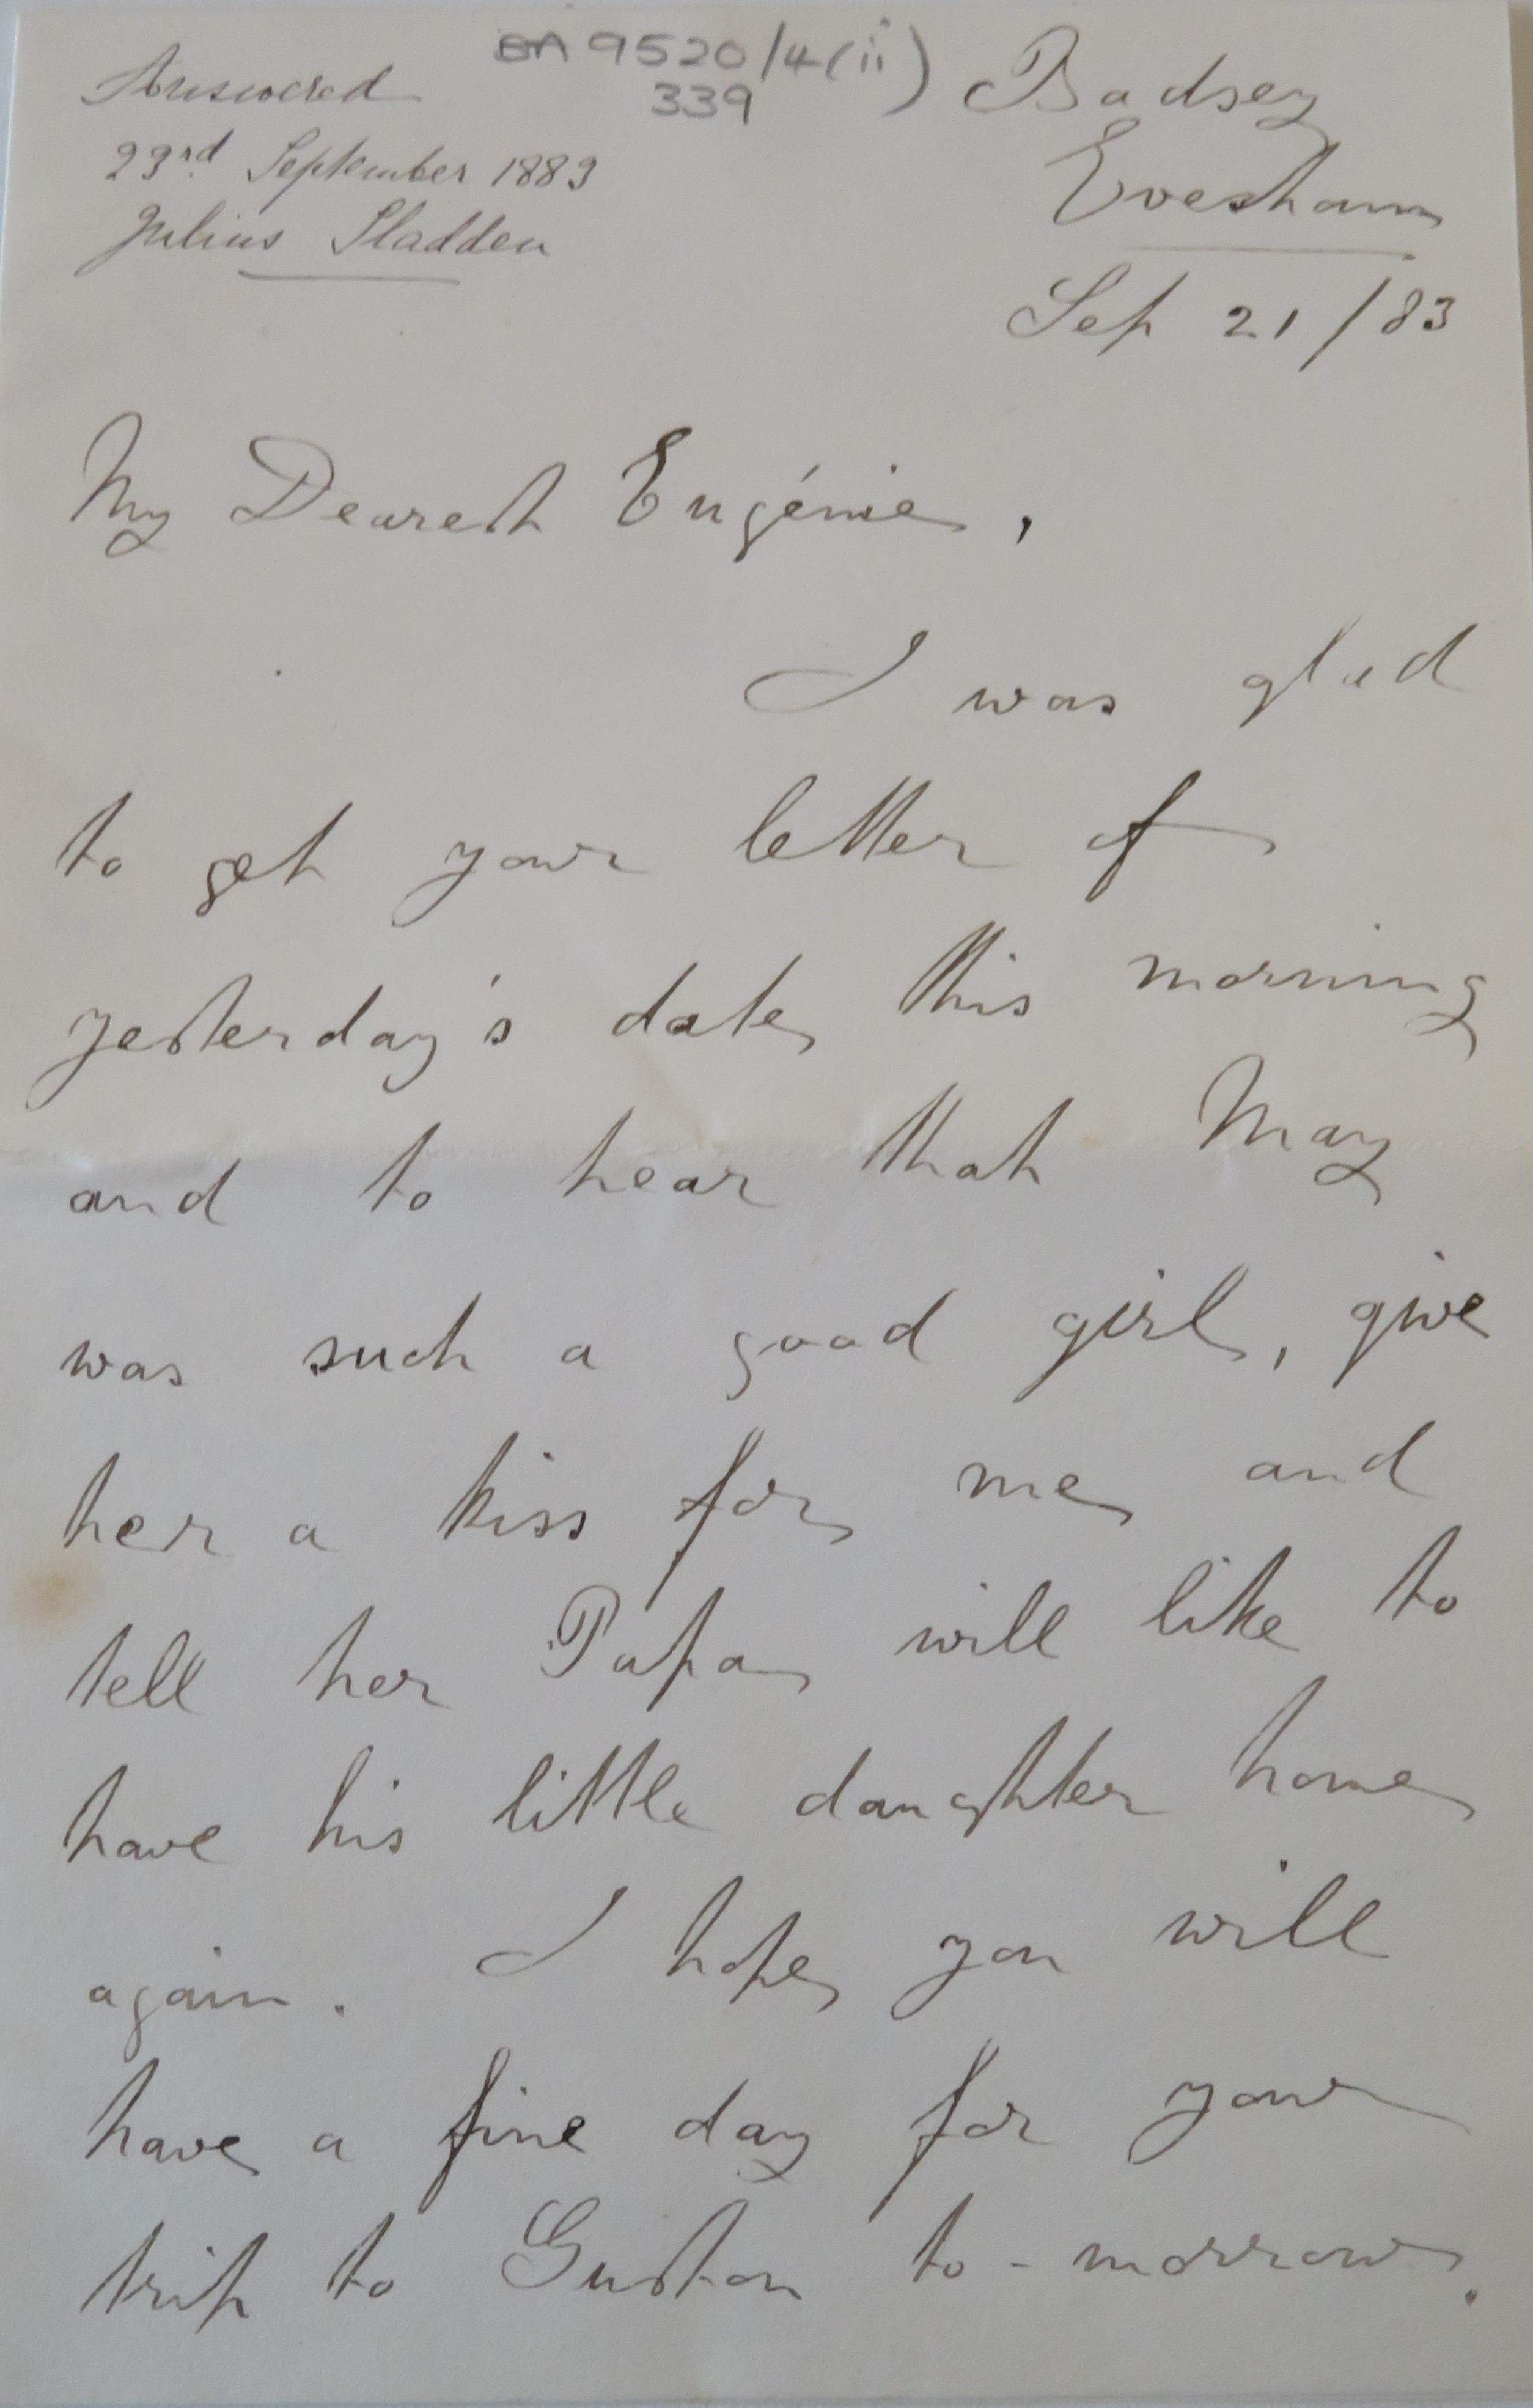 BA 9520/4(ii)
339
Answered
23rd September 1883
Julius Sladden
Badsey
Evesham
Sep 21/83
My Dearest Eugénie,
I was glad
to get your letter of
yesterday's date this morning
and to hear that May
was such a good girl, give
her a kiss for me and
tell her Papa will like to
have his little daughter home
again. I hope you will
have a fine day for your
trip to Guston to-morrow.